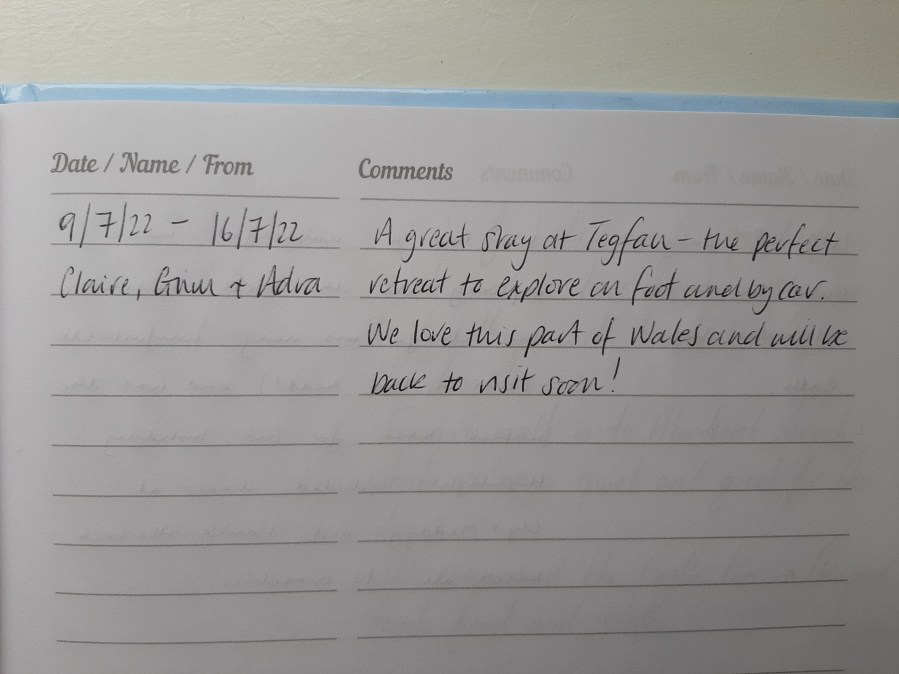 Date / Name / From
Comments
9/7/22 - 16/7/22
Claire, + Adra
A great stay at Tegfan - the perfect
retreat to explore on foot and by car.
We love this part of Wales and will be
back to visit soon!